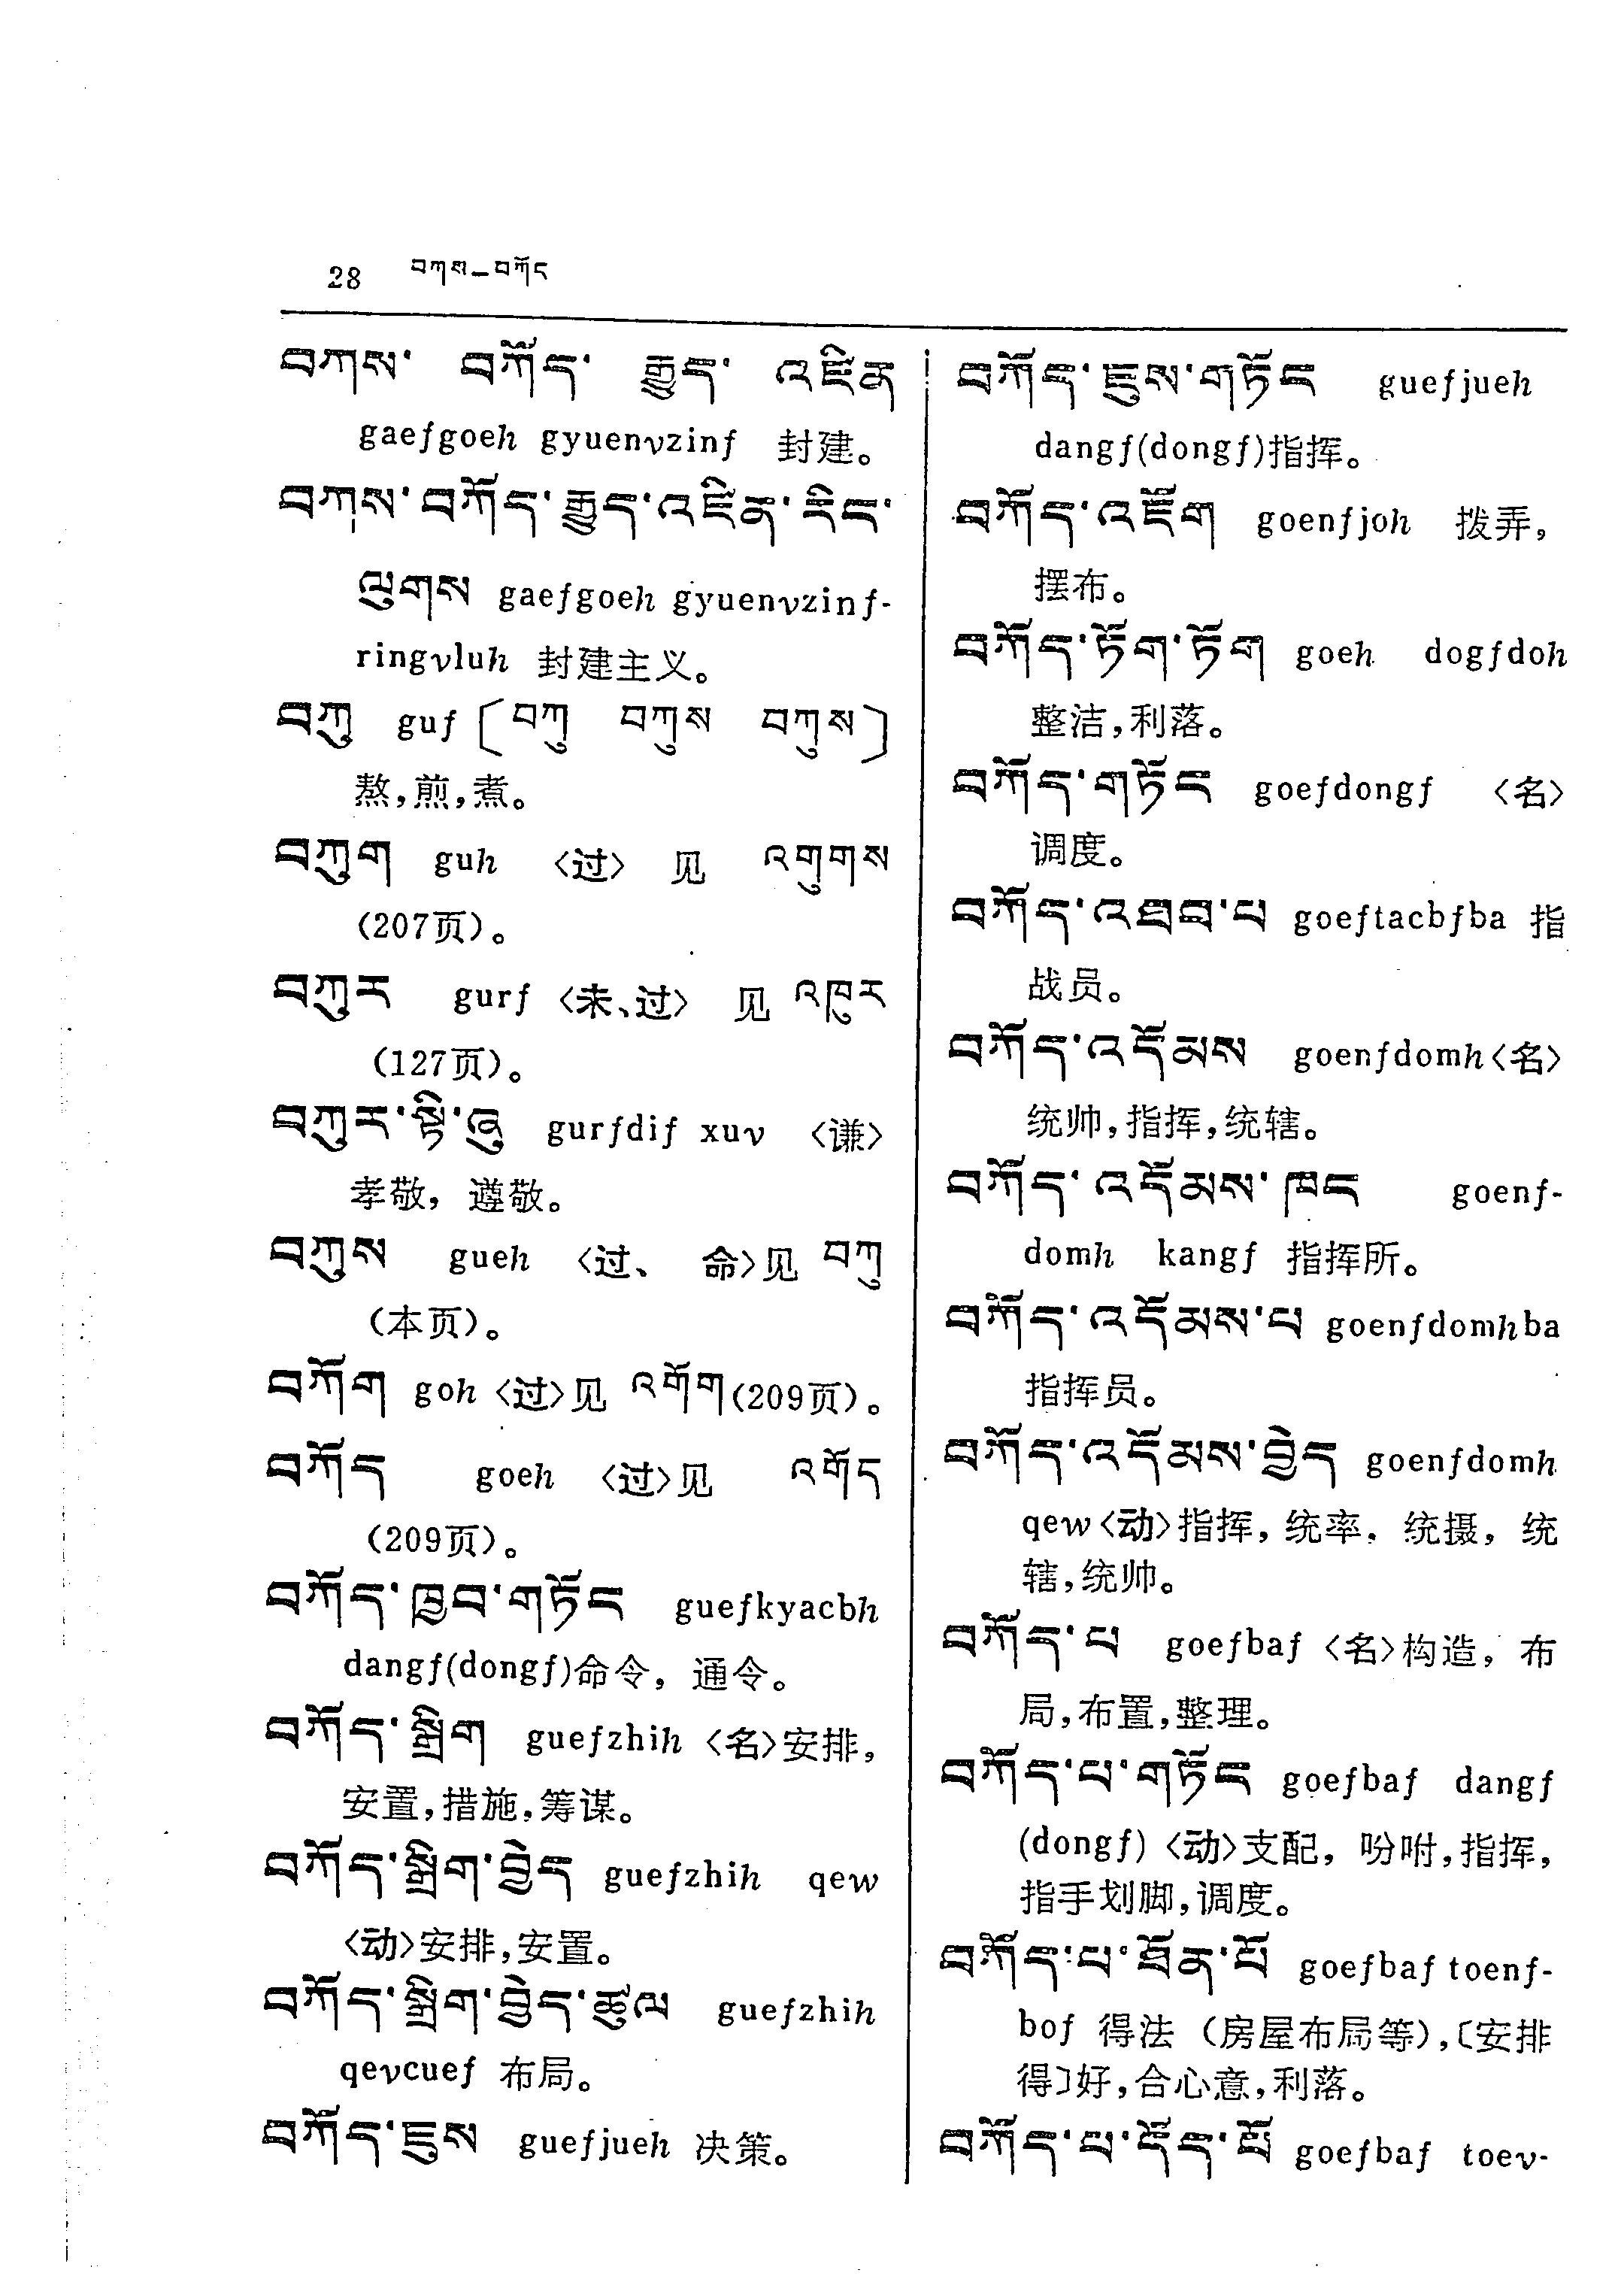 28 བཀས–བཀོད
བཀས་ བཀོད་ རྒྱུད་ འཛིན
gaefgoeh gyuenvzinf 封建。
བཀས་བཀོད་རྒྱུད་འཛིན་རིང་
ལུགས gaefgoeh gyuenvzinf-
ringvluh 封建主义。
བཀུ guf〔བཀུ བཀུས བཀུས〕
熬,煎,煮。
བཀུག guh 〈过〉 见 འགུགས
(207页)。
བཀུར gurf 〈未、过〉 见 འཁུར
(127页)。
བཀུར་སྟི་ཞུ gurfdif xuv 〈谦〉
孝敬, 遵敬。
བཀུས gueh 〈过、 命〉见 བཀུ
(本页)。
བཀོག goh〈过〉见 འགོག(209页)。
བཀོད goeh 〈过〉见 འགོད
(209页)。
བཀོད་ཁྱབ་གཏོང guefkyacbh
dangf(dongf)命令, 通令。
བཀོད་སྒྲིག guefzhih〈名〉安排,
安置,措施,筹谋。
བཀོད་སྒྲིག་བྱེད guefzhih qew
〈动〉安排,安置。
བཀོད་སྒྲིག་བྱེད་ཚུལ guefzhih
qevcuef 布局。
བཀོད་ཇུས guefjueh 决策。
བཀོད་ཇུས་གཏོང guefjueh
dangf(dongf)指挥。
བཀོད་འཇོག goenfjoh 拨弄,
摆布。
བཀོད་ཏོག་ཏོག goeh dogfdoh
整洁,利落。
བཀོད་གཏོང goefdongf 〈名〉
调度。
བཀོད་འཐབ་པ goeftacbfba 指
战员。
བཀོད་འདོམས goenfdomh〈名〉
统帅,指挥,统辖。
བཀོད་འདོམས་ཁང goenf-
domh kangf 指挥所。
བཀོད་འདོམས་པ goenfdomhba
指挥员。
བཀོད་འདོམས་བྱེད goenfdomh
qew〈动〉指挥, 统率, 统摄, 统
辖,统帅。
བཀོད་པ goefbaf〈名〉构造, 布
局,布置,整理。
བཀོད་པ་གཏོང goefbaf dangf
(dongf)〈动〉支配, 吩咐,指挥,
指手划脚,调度。
བཀོད་པ་ཐོན་པོ goefbaf toenf-
bof 得法 (房屋布局等),〔安排
得〕好,合心意,利落。
བཀོད་པ་དོད་པོ goefbaf toev-